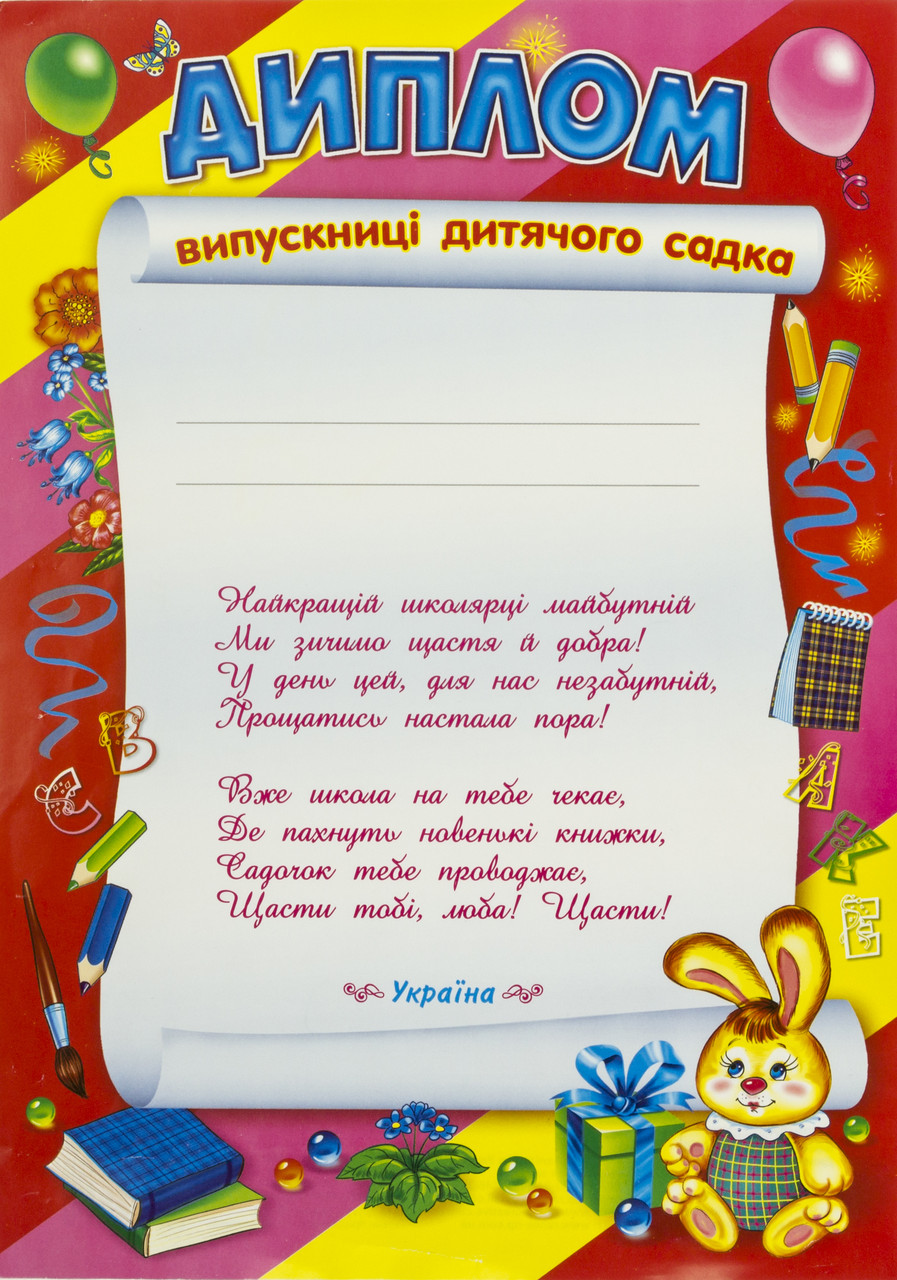 ДИПЛОМ
випускниці дитячого садка
Найкращій школярці майбутній
Ми зичимо щастя й добра!
У день цей, для нас незабутній,
Прощатись настала пора!
Вже школа на тебе чекає,
Де пахнуть новенькі книжки,
Садочок тебе проводжає,
Щасти тобі, люба! Щасти!
Україна
В
А
Ж
Е